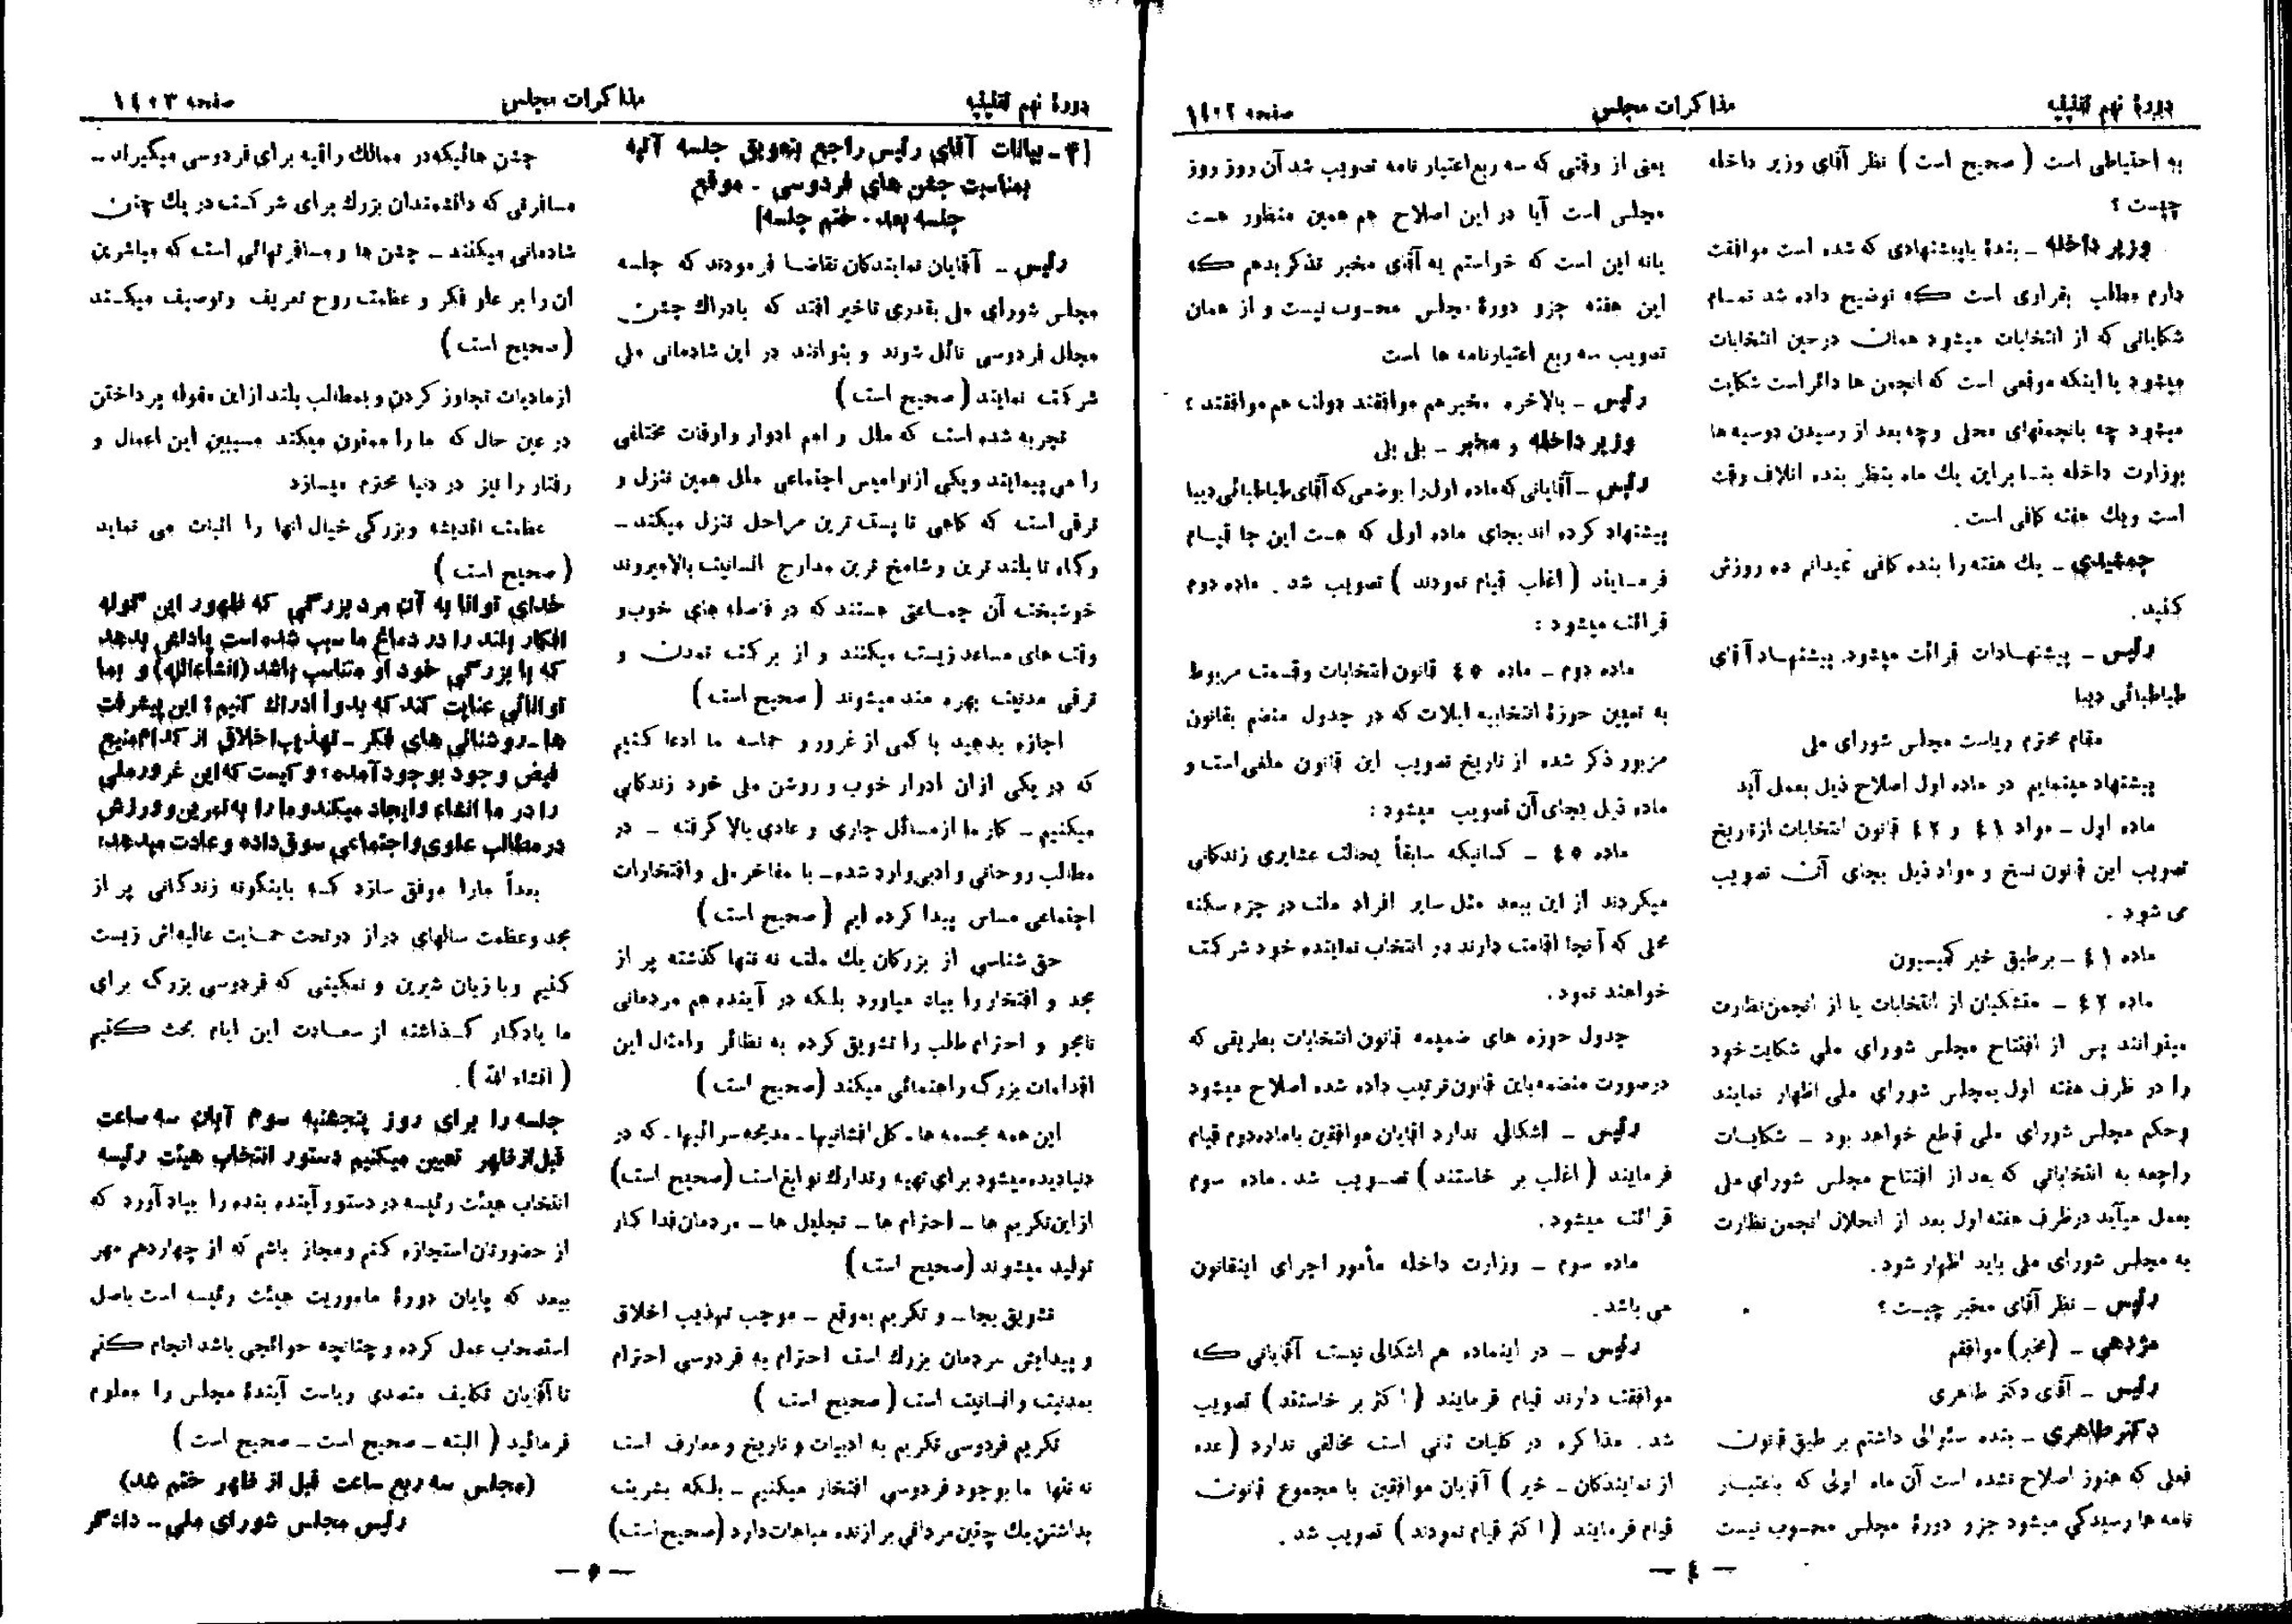 دورهٔ نهم تقنینیه
مذاکرات مجلس
صفحه ۱۴۰۲
به احتیاطی است ( صحیح است ) نظر آقای وزیر داخله
چیست ؟
وزیر داخله ـ بندهٔ باپیشنهادی که شده است موافقت
دارم مطلب بقراری است که توضیح داده شد تمام
شکایاتی که از انتخابات میشود همان درحین انتخابات
میشود یا اینکه موقعی است که انجمن ها دائر است شکایت
میشود چه بانجمنهای محلی وچه بعد از رسیدن دوسیه ها
بوزارت داخله بنابراین یك ماه بنظر بنده اتلاف وقت
است ویك هفته کافی است .
جمشیدی ـ یك هفته را بنده کافی نمیدانم ده روزش
کنید .
رئیس ـ پیشنهادات قرائت میشود. پیشنهاد آقای
طباطبائی دیبا
مقام محترم ریاست مجلس شورای ملی
پیشنهاد مینمایم در ماده اول اصلاح ذیل بعمل آید
ماده اول ـ مواد ٤١ و ٤٢ قانون انتخابات ازتاریخ
تصویب این قانون نسخ و مواد ذیل بجای آن تصویب
می شود .
ماده ٤١ ـ برطبق خبر کمیسیون
ماده ٤٢ ـ متشکیان از انتخابات یا از انجمن نظارت
میتوانند پس از افتتاح مجلس شورای ملی شکایت خود
را در ظرف هفته اول بمجلس شورای ملی اظهار نمایند
وحکم مجلس شورای ملی قطع خواهد بود ـ شکایات
راجعه به انتخاباتی که بعد از افتتاح مجلس شورای ملی
بعمل میآید درظرف هفته اول بعد از انحلال انجمن نظارت
به مجلس شورای ملی باید اظهار شود.
رئیس ـ نظر آقای مخبر چیست ؟
مؤدهی ـ (مخبر) موافقم
رئیس ـ آقای دکتر طاهری
دکتر طاهری ـ بنده سئوالی داشتم بر طبق قانون
فعلی که هنوز اصلاح نشده است آن ماه اولی که باعتبار
نامه ها رسیدگی میشود جزو دورهٔ مجلس محسوب نیست
یعنی از وقتی که سه ربع اعتبار نامه تصویب شد آن روز روز
مجلس است آیا در این اصلاح هم همین منظور هست
یانه این است که خواستم به آقای مخبر تذکر بدهم که
این هفته جزو دورهٔ مجلس محسوب نیست و از همان
تصویب سه ربع اعتبارنامه ها است
رئیس ـ بالاخره مخبر هم موافقند دولت هم موافقتند ؟
وزیر داخله و مخبر ـ بلی بلی
رئیس ـ آقایانی که ماده اول را بوضعی که آقای طباطبائی دیبا
پیشنهاد کرده اند بجای ماده اولی که هست این جا قیام
فرمایند ( اغلب قیام نمودند ) تصویب شد . ماده دوم
قرائت میشود :
ماده دوم ـ ماده ٤٥ قانون انتخابات وقسمت مربوط
به تعیین حوزهٔ انتخابیه ایلات که در جدول منضم بقانون
مزبور ذکر شده از تاریخ تصویب این قانون ملغی است و
ماده ذیل بجای آن تصویب میشود :
ماده ٤٥ ـ کسانیکه سابقاً بحالت عشایری زندگانی
میکردند از این ببعد مثل سایر افراد ملت در جزء سکنه
محلی که آنجا اقامت دارند در انتخاب نماینده خود شرکت
خواهند نمود.
جدول حوزه های ضمیمه قانون انتخابات بطریقی که
درصورت منضمه باین قانون ترتیب داده شده اصلاح میشود
رئیس ـ اشکالی ندارد آقایان موافقین باماده دوم قیام
فرمایند ( اغلب بر خاستند ) تصویب شد . ماده سوم
قرائت میشود.
ماده سوم ـ وزارت داخله مأمور اجرای اینقانون
می باشد.
رئیس ـ در اینماده هم اشکالی نیست آقایانی که
موافقت دارند قیام فرمایند ( اکثر بر خاستند ) تصویب
شد . مذاکره در کلیات ثانی است مخالفی ندارد ( عده
از نمایندگان ـ خیر ) آقایان موافقین با مجموع قانون
قیام فرمایند ( اکثر قیام نمودند ) تصویب شد .
— ٤ —
دورهٔ نهم تقنینیه
مذاکرات مجلس
صفحه ۱۴۰۳
[۴ـ بیانات آقای رئیس راجع بتعویق جلسه آتیه
بمناسبت جشن های فردوسی ـ موقع
جلسه بعد ـ ختم جلسه]
رئیس ـ آقایان نمایندگان تقاضا فرمودند که جلسه
مجلس شورای ملی بقدری تاخیر افتد که بادراك جشن
مجلل فردوسی نائل شوند و بتوانند در این شادمانی ملی
شرکت نمایند (صحیح است )
تجربه شده است که ملل و امم ادوار واوقات مختلفی
را می پیمایند ویکی از نوامیس اجتماعی ملل همین تنزل و
ترقی است که گاهی تا پست ترین مراحل تنزل میکند ـ
وگاه تا بلند ترین وشامخ ترین مدارج انسانیت بالامیروند
خوشبخت آن جماعتی هستند که در فاصله های خوب و
وقت های مساعد زیست میکنند و از برکت تمدن و
ترقی مدنیت بهره مند میشوند ( صحیح است )
اجازه بدهید با کمی از غرور و حماسه ما ادعا کنیم
که در یکی از ان ادوار خوب و روشن ملی خود زندگانی
میکنیم ـ کار ما از مسائل جاری و عادی بالا گرفته ـ در
مطالب روحانی و ادبی وارد شده ـ با مفاخر ملی و افتخارات
اجتماعی مساس پیدا کرده ایم ( صحیح است )
حق شناسی از بزرگان یك ملت نه تنها گذشته پر از
مجد و افتخار را بیاد میاورد بلکه در آینده هم مردمانی
نامجو و احترام طلب را تشویق کرده به نظائر وامثال این
اقدامات بزرگ راهنمائی میکند (صحیح است )
این همه مجسمه ها ـ گل افشانیها ـ مدیحه سرائیها ـ که در
دنیادیده میشود برای تهیه وتدارك نوابغ است (صحیح است)
ازاین تکریم ها ـ احترام ها ـ تجلیل ها ـ مردمان فداکار
تولید میشوند (صحیح است )
تشویق بجا ـ و تکریم بموقع ـ موجب تهذیب اخلاق
و پیدایش مردمان بزرك است احترام به فردوسی احترام
بمدنیت وانسانیت است ( صحیح است )
تکریم فردوسی تکریم به ادبیات و تاریخ و معارف است
نه تنها ما بوجود فردوسی افتخار میکنیم ـ بلکه بشریت
بداشتن یك چنین مردانی برازنده مباهات دارد (صحیح است)
جشن هائیکه در ممالك راقیه برای فردوسی میگیرند ـ
مسافرتی که دانشمندان بزرك برای شرکت در یك چنان
شادمانی میکنند ـ جشن ها و مسافرتهائی است که مباشرین
آن را بر علو فکر و عظمت روح تعریف وتوصیف میکند
( صحیح است )
ازمادیات تجاوز کردن و بمطالب بلند از این مقوله پرداختن
در عین حال که ما را ممنون میکند مسببین این اعمال و
رفتار را نیز در دنیا محترم میسازد
عظمت اندیشه وبزرگی خیال آنها را اثبات می نماید
( صحیح است )
خدای توانا به آن مرد بزرگی که ظهور این گونه
افکار بلند را در دماغ ما سبب شده است پاداشی بدهد
که با بزرگی خود او متناسب باشد (انشاءالله) و بما
توانائی عنایت کند که بدواً ادراك کنیم : این پیشرفت
ها ـ روشنائی های فکر ـ تهذیب اخلاق از کدام منبع
فیض وجود بوجود آمده ؛ و کیست که این غرور ملی
را در ما انشاء وایجاد میکند و ما را به تمرین و ورزش
در مطالب علوی و اجتماعی سوق داده و عادت میدهد :
بعداً مارا موفق سازد که باینگونه زندگانی پر از
مجد وعظمت سالهای دراز درتحت حمایت عالیه اش زیست
کنیم وبا زبان شیرین و نمکینی که فردوسی بزرگ برای
ما یادگار گذاشته از سعادت این ایام بحث کنیم
( انشاء الله ).
جلسه را برای روز پنجشنبه سوم آبان سه ساعت
قبل از ظهر تعیین میکنیم دستور انتخاب هیئت رئیسه
انتخاب هیئت رئیسه در دستور آینده بنده را بیاد آورد که
از حضورتان استجازه کنم ومجاز باشم که از چهاردهم مهر
ببعد که پایان دورهٔ ماموریت هیئت رئیسه است باصل
استصحاب عمل کرده و چنانچه حوائجی باشد انجام کنم
تا آقایان تکلیف متصدی ریاست آیندهٔ مجلس را معلوم
فرمائید ( البته ـ صحیح است ـ صحیح است )
(مجلس سه ربع ساعت قبل از ظهر ختم شد)
رئیس مجلس شورای ملی ـ دادگر
— ٥ —